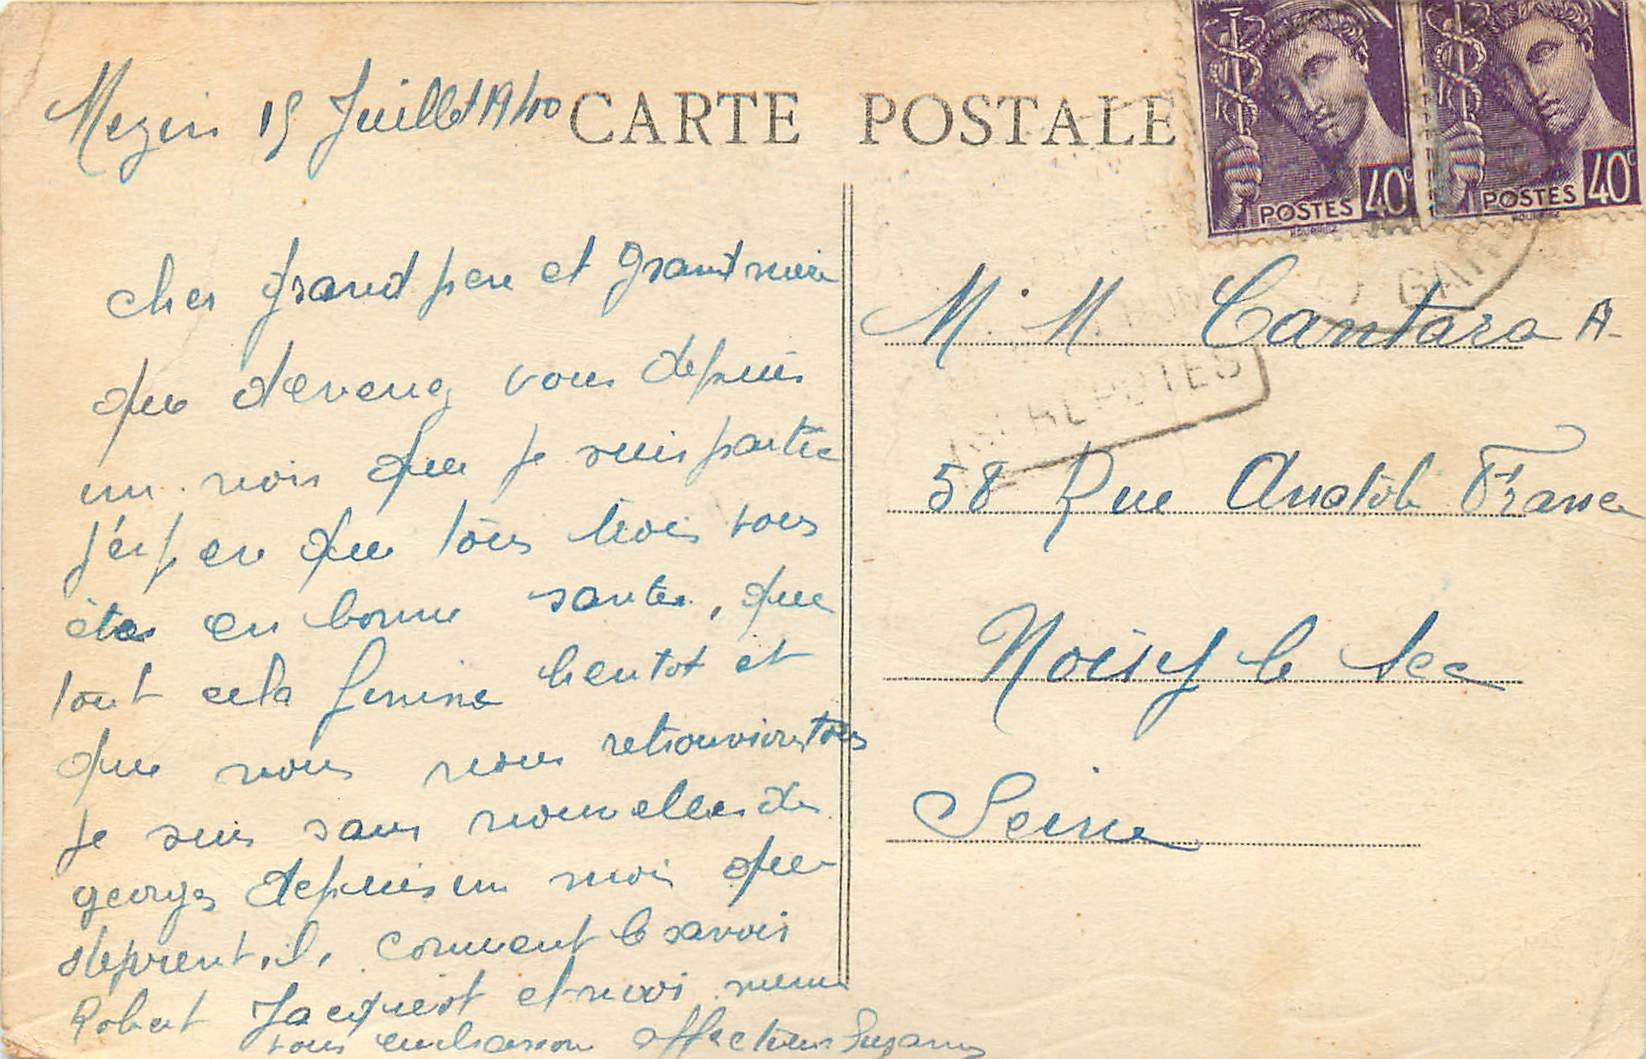 Mezin 15 Juillet 1940
CARTE POSTALE
POSTES 40c
POSTES 40c
cher grand pere et grand mere
que devenez vous depuis
un mois que je suis partie
j'esper que tous trois vous
êtes en bonne santée, que
tout cela finisse bientot et
que nous nous retrouvions tous
je suis sans nouvelles de
georges depuis un mois que
devient, il, comment le savoir
Robert Jacquot et moi meme
vous embrassons affectueus Suzanne
M. M Cantara A-
58 Rue Anatole France
Noisy le Sec
Seine
GARE
ENTREPOTES